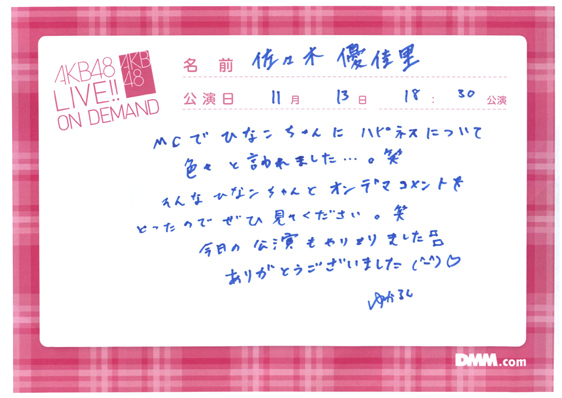 AKB48
LIVE!!
ON DEMAND
AKB
48
名前 佐々木 優佳里
公演日 11月 13日 18:30公演
MCでひなこちゃんにハピネスについて
色々と言われました…。笑
そんなひなこちゃんとオンデマコメントを
とったのでぜひ見てください。笑
今日の公演もやりきりました
ありがとうございました(^-^)♡
ゆかるん
DMM.com